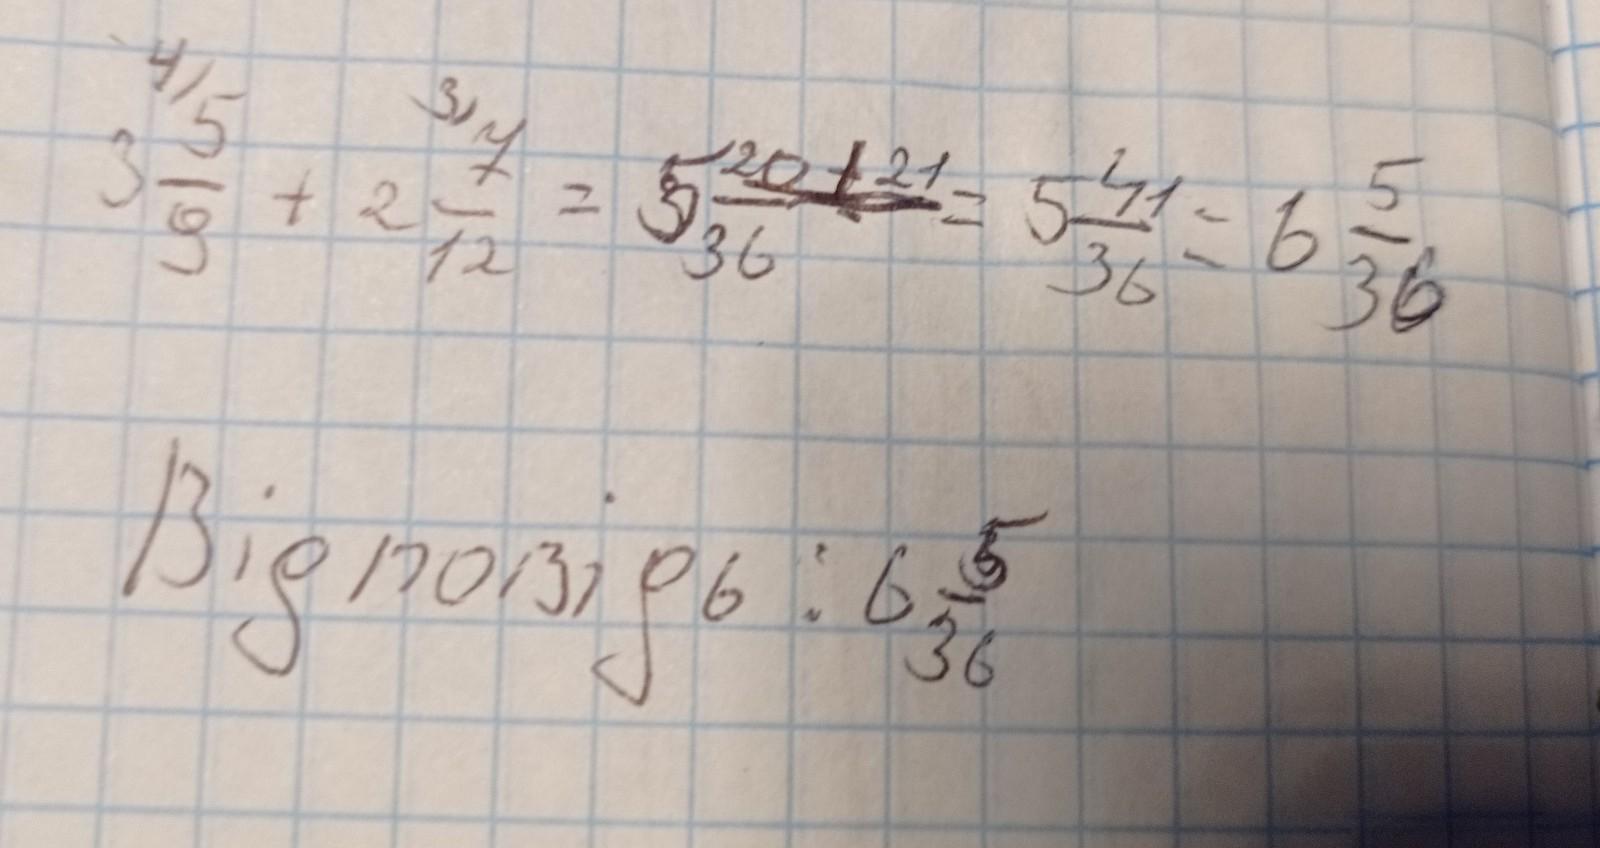 3 ⁴⁾5/9 + 2 ³⁾7/12 = 5 20+21/36 = 5 41/36 = 6 5/36
Відповідь: 6 5/36